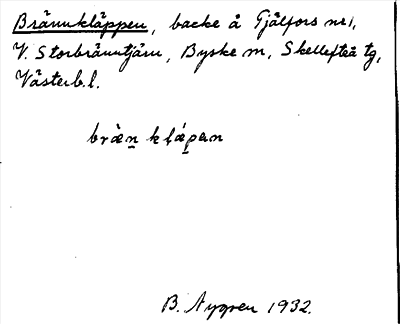 Brännkläppen, backe å Fjälfors nr 1,
V. Storbränntjärn, Byske sn, Skellefteå tg,
Västerb. l.
brän̲ klä́p̲an
B. Nygren 1932.